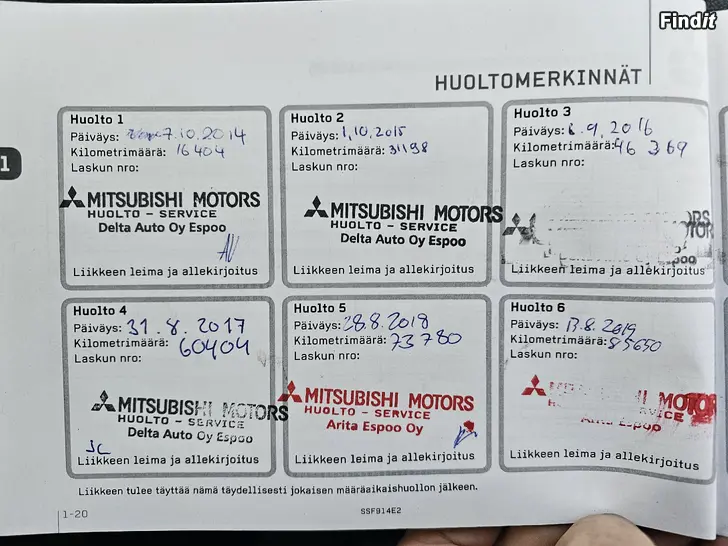 Findit
HUOLTOMERKINNÄT
1
Huolto 1
Päiväys: 7.10.2014
Kilometrimäärä: 16404
Laskun nro:
MITSUBISHI MOTORS
HUOLTO - SERVICE
Delta Auto Oy Espoo
Liikkeen leima ja allekirjoitus
Huolto 2
Päiväys: 1,10,2015
Kilometrimäärä: 31198
Laskun nro:
MITSUBISHI MOTORS
HUOLTO - SERVICE
Delta Auto Oy Espoo
Liikkeen leima ja allekirjoitus
Huolto 3
Päiväys: 6.9,2016
Kilometrimäärä: 46 369
Laskun nro:
Liikkeen leima ja allekirjoitus
Huolto 4
Päiväys: 31.8.2017
Kilometrimäärä: 60404
Laskun nro:
MITSUBISHI MOTORS
HUOLTO - SERVICE
Delta Auto Oy Espoo
Liikkeen leima ja allekirjoitus
Huolto 5
Päiväys: 28.8.2018
Kilometrimäärä: 73780
Laskun nro:
MITSUBISHI MOTORS
HUOLTO - SERVICE
Arita Espoo Oy
Liikkeen leima ja allekirjoitus
Huolto 6
Päiväys: 13.8.2019
Kilometrimäärä: 85650
Laskun nro:
Liikkeen leima ja allekirjoitus
Liikkeen tulee täyttää nämä täydellisesti jokaisen määräaikaishuollon jälkeen.
1-20
SSF914E2